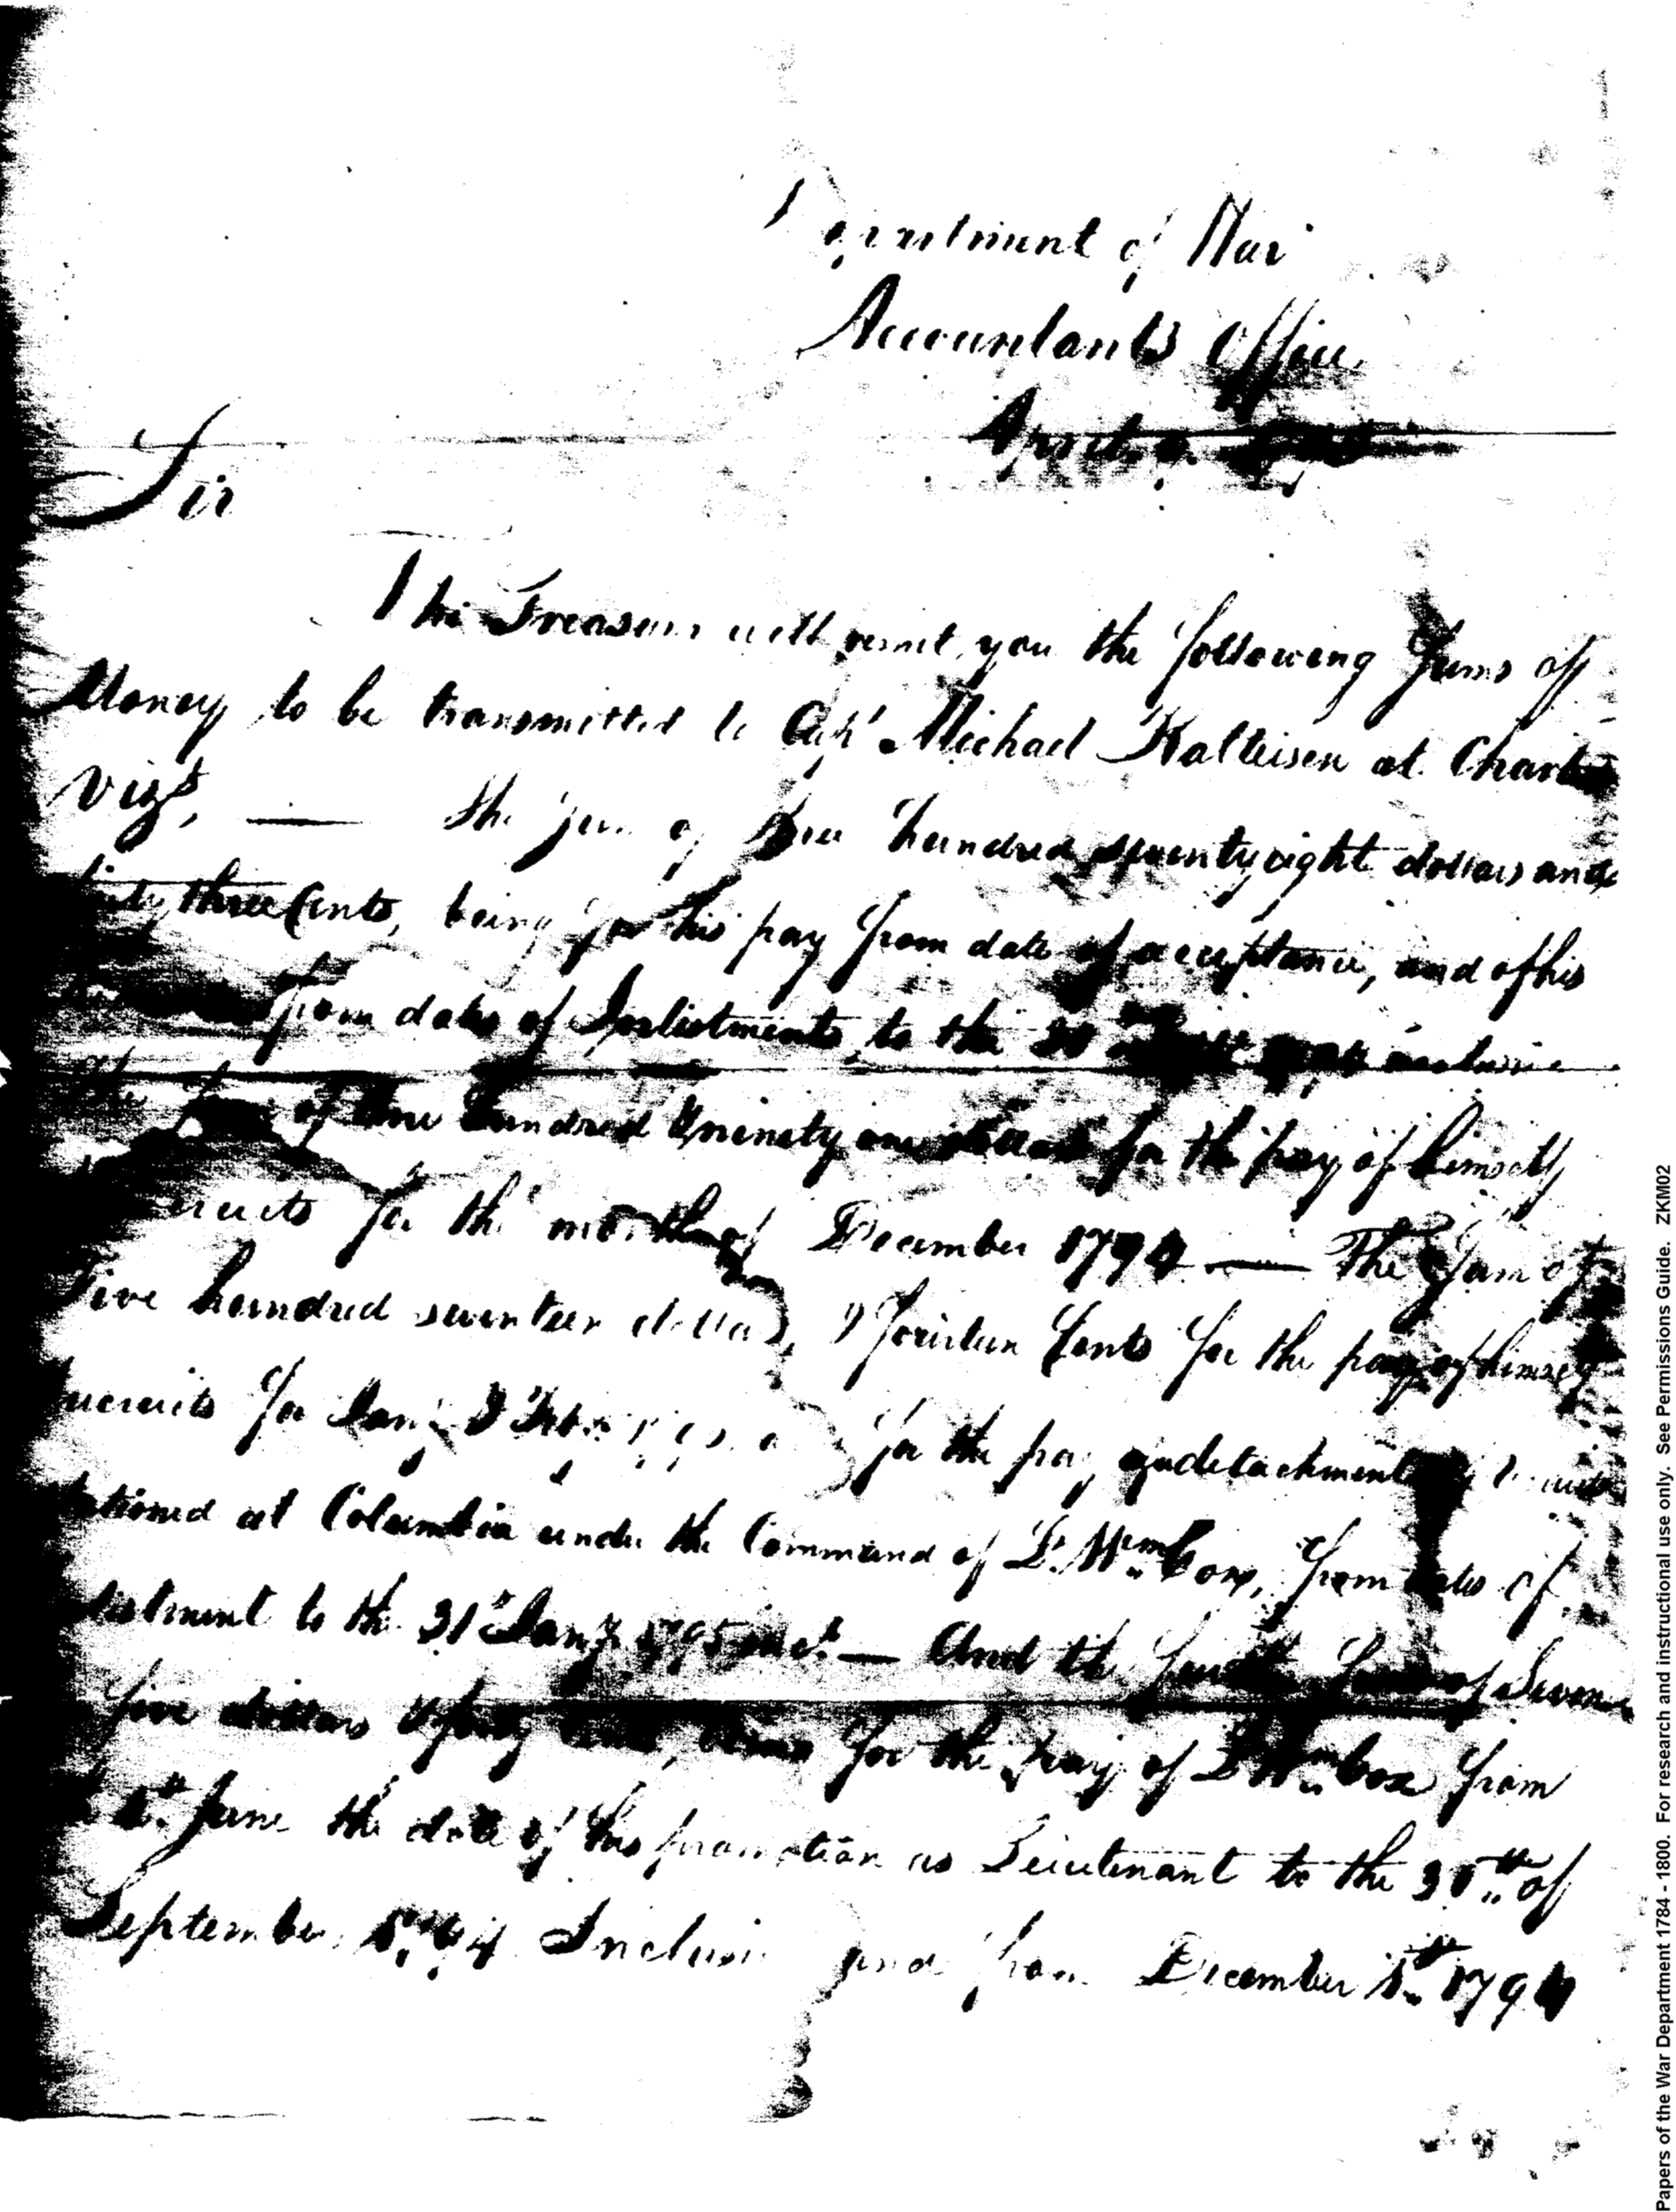 Department of War
Accountants Office
April 9.
Sir
The Treasurer will remit you the following Sums of
Money to be transmitted to Capt Michael Kalteisen at Charles
Vizt, — The Sum of hundred seventy eight dollars and
thirty three Cents, being for his pay from date of acceptance, and of his
from dates of Inlistments, to the 30 inclusive
The Sum of One hundred & ninety one dollars for the pay of himself
recruits for the month of December 1794 — The Sum of
Five hundred seventeen dollars, & fourteen Cents for the pay of himself
recruits for Jany & Feby for the pay of a detachment of recruits
stationed at Columbia under the Command of Lt. Wm Cox, from dates of
listment to the 31st Jany 1795 incl. — And the further Sum of Seven
five dollars & forty Cents for the pay of Lt Wm Cox from
1st June the date of his promotion as Lieutenant to the 30th of
September, 1794 Inclusive and from December 1st 1794
Papers of the War Department 1784 - 1800. For research and instructional use only. See Permissions Guide. ZKM02